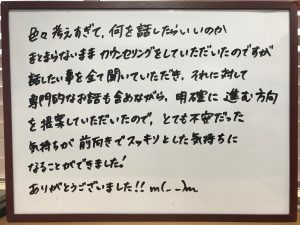 色々考えすぎて、何を話したらいいのか
まとまらないままカウンセリングをしていただいたのですが
話したい事を全て聞いていただき、それに対して
専門的なお話も含めながら、明確に進む方向
を提案していただいたので、とても不安だった
気持ちが前向きでスッキリとした気持ちに
なることができました!
ありがとうございました!! m(_ _)m